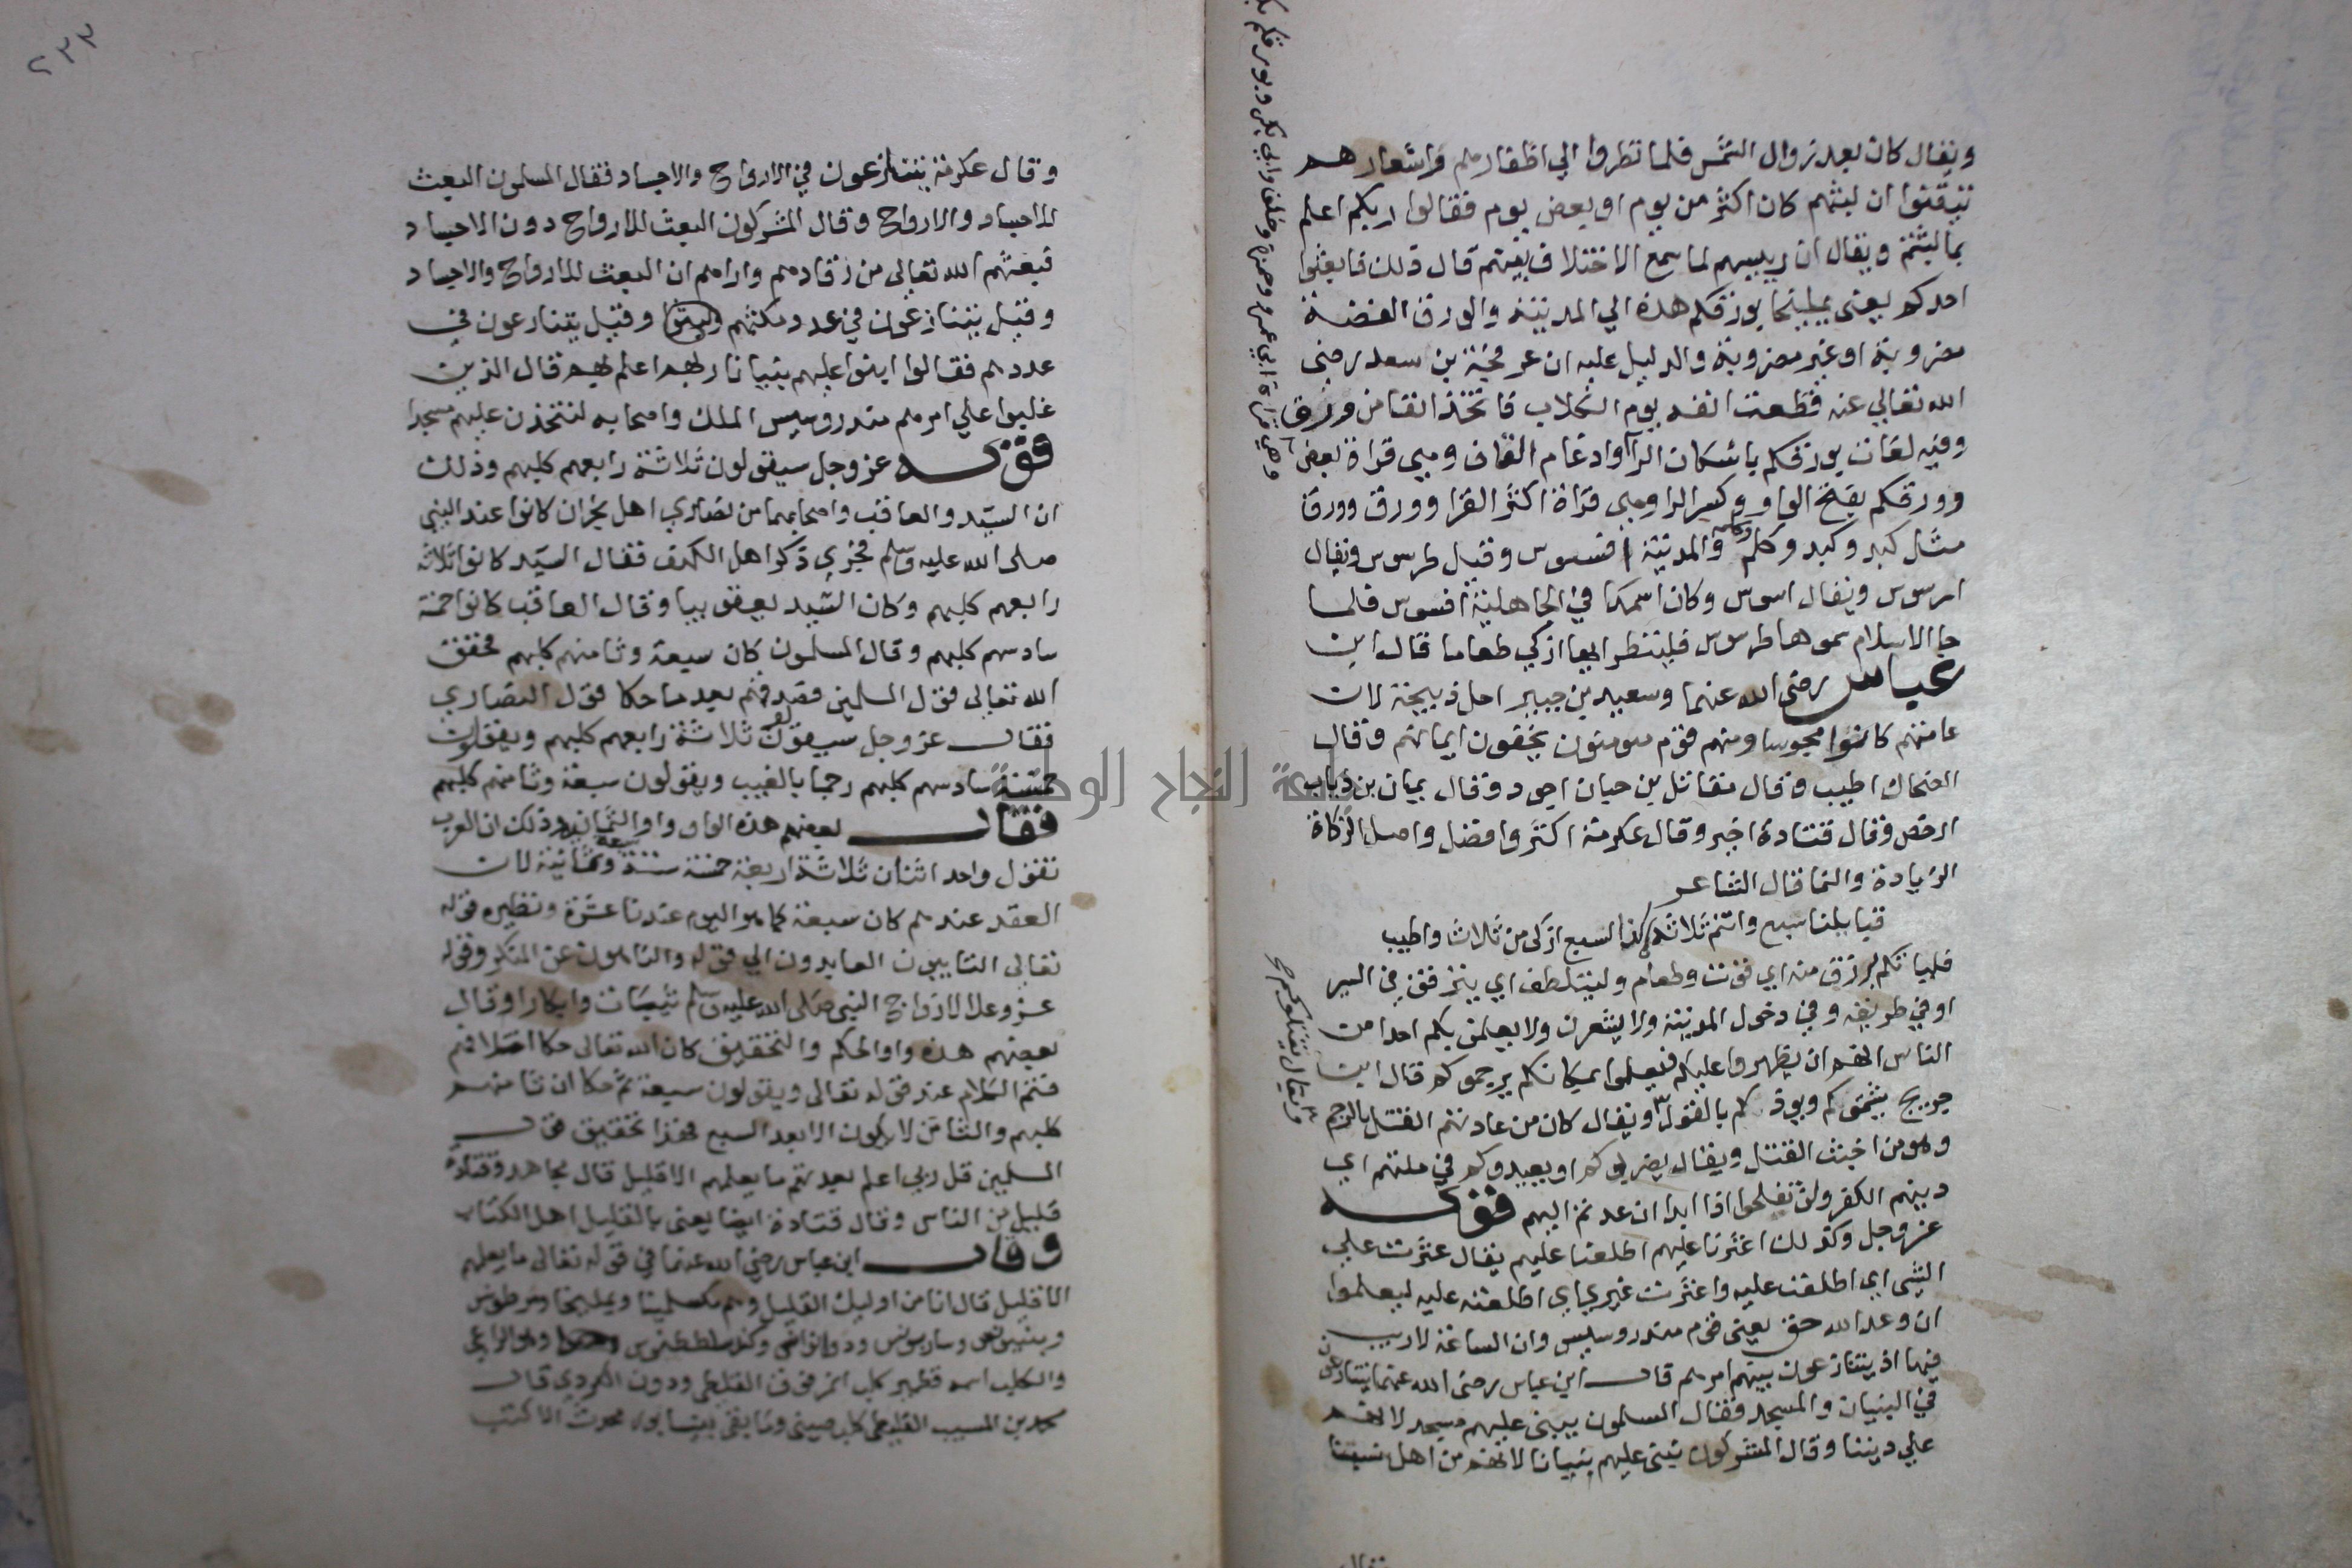 ويقال كان بعد زوال الشمس فلما نظروا الي اظفارهم واشعارهم
تيقنوا ان لبثهم كان اكثر من يوم او بعض يوم فقالوا ربكم اعلم
بما لبثتم ويقال ان رييسهم لما سمع الاختلاف بينهم قال ذلك فابعثوا
احدكم يعني يمليخا بورقكم هذه الي المدينة والورق الفضة
مضروبة او غير مضروبة والدليل عليه ان عرفجة بن سعد رضي
الله تعالي عنه قطعت انفه يوم الكلاب فاتخذ انفا من ورق
وفيه لغات بورقكم باسكان الرا وادغام القاف وهي قراة بعض
وورقكم بفتح الواو وكسر الرا وهي قراة اكثر القرا وورق وورق
مثل كبد وكبد وكلم وكلمه والمدينة افسوس وقيل طرسوس ويقال
ارسوس ويقال اسوس وكان اسمها في الجاهلية افسوس فلما
جا الاسلام سموها طرسوس فلينظر ايها ازكي طعاما قال ابن
عباس رضي الله عنهما وسعيد بن جبير احل ذبيحة لان
عامتهم كانوا مجوسا ومنهم قوم مومنون يخفون ايمانهم وقال
الضحاك اطيب وقال مقاتل بن حيان اجود وقال يمان بن ذياب
ارخص وقال قتادة اخير وقال عكرمة اكثر وافضل واصل الزكاة
الزيادة والنما قال الشاعر
قبايلنا سبع وانتم ثلاثة كذا السبع ازكى من ثلاث واطيب
فلياتكم برزق منه اي قوت وطعام وليتلطف اي يترفق في السير
او في طريقه وفي دخول المدينة ولا يشعرن ولا يعلمن بكم احدا من
الناس انهم ان يظهروا عليكم فيعلموا بمكانكم يرجموكم قال ابن
جريج يشتموكم ويوذوكم بالقول ويقال كان من عادتهم القتل بالرجم
وهو من اخبث القتل ويقال يضربوكم او يعيدوكم في ملتهم اي
دينهم الكفر ولن تفلحوا اذا ابدا ان عدتم اليهم قوله
عز وجل وكذلك اعثرنا عليهم اطلعنا عليهم يقال عثرت علي
الشي اي اطلعت عليه واعثرت غيري اي اطلعته عليه ليعلموا
ان وعد الله حق يعني قوم مندروسيس وان الساعة لا ريب
فيها اذ يتنازعون بينهم امرهم قال ابن عباس رضي الله عنهما يتنازعون
في البنيان والمسجد فقال المسلمون يبنى عليهم مسجد لانهم
علي ديننا وقال المشركون نبني عليهم بنيانا لانهم من اهل
وهي قراة ابي عمرو وحمزة وخلف وابي بكر
ويقال يقتلوكم
٢٣٣
وقال عكرمة يتنازعون في الارواح والاجساد فقال المسلمون البعث
للاجساد والارواح وقال المشركون البعث للارواح دون الاجساد
فبعثهم الله تعالى من رقادهم واراهم ان البعث للارواح والاجساد
وقيل يتنازعون في عدد مكثهم وقيل يتنازعون في
عددهم فقالوا ابنوا عليهم بنيانا ربهم اعلم بهم قال الذين
غلبوا علي امرهم مندروسيس الملك واصحابه لنتخذن عليهم مسجدا
قوله عز وجل سيقولون ثلاثة رابعهم كلبهم وذلك
ان السيد والعاقب واصحابهما من نصاري اهل نجران كانوا عند النبي
صلى الله عليه وسلم فجري ذكر اهل الكهف فقال السيد كانوا ثلاثة
رابعهم كلبهم وكان السيد يعقوبيا وقال العاقب كانوا خمسة
سادسهم كلبهم وقال المسلمون كان سبعة وثامنهم كلبهم فحقق
الله تعالي قول المسلمين بعد ما حكا قول النصاري
فقال عز وجل سيقولون ثلاثة رابعهم كلبهم ويقولون
خمسة سادسهم كلبهم رجما بالغيب ويقولون سبعة وثامنهم كلبهم
فقال بعضهم هذه الواو واو الثمانية وذلك ان العرب
تقول واحد اثنان ثلاثة اربعة خمسة ستة سبعة وثمانية لان
العقد عندهم كان سبعة كما هو اليوم عندنا عشرة ونظيره قوله
تعالي التايبون العابدون الي قوله والناهون عن المنكر وقوله
عز وعلا لازواج النبي صلى الله عليه وسلم ثيبات وابكارا وقال
بعضهم هذه واو الحكم والتحقيق كان الله تعالى حكا اختلافهم
فتم الكلام عند قوله تعالى ويقولون سبعة ثم حكا ان ثامنهم
كلبهم والثامن لا يكون الا بعد السبع فهذا تحقيق قول
المسلمين قل ربي اعلم بعدتهم ما يعلمهم الا قليل قال مجاهد وقتادة
قليل من الناس وقال قتادة ايضا يعني بالقليل اهل الكتاب
وقال ابن عباس رضي الله عنهما في قوله تعالى ما يعلمهم
الا قليل قال انا من اوليك القليل وهم مكسلمينا ويمليخا ومرطونس
وبينيونس وسارينونس ودوانوانس وهو الراعي
والكلب اسمه قطمير كلب انمر فوق القلطي ودون الكردي قال
محمد بن المسيب القلطي كلب صيني وما بقي بنيسابور محدث الا كتب
جامعة النجاح الوطنية